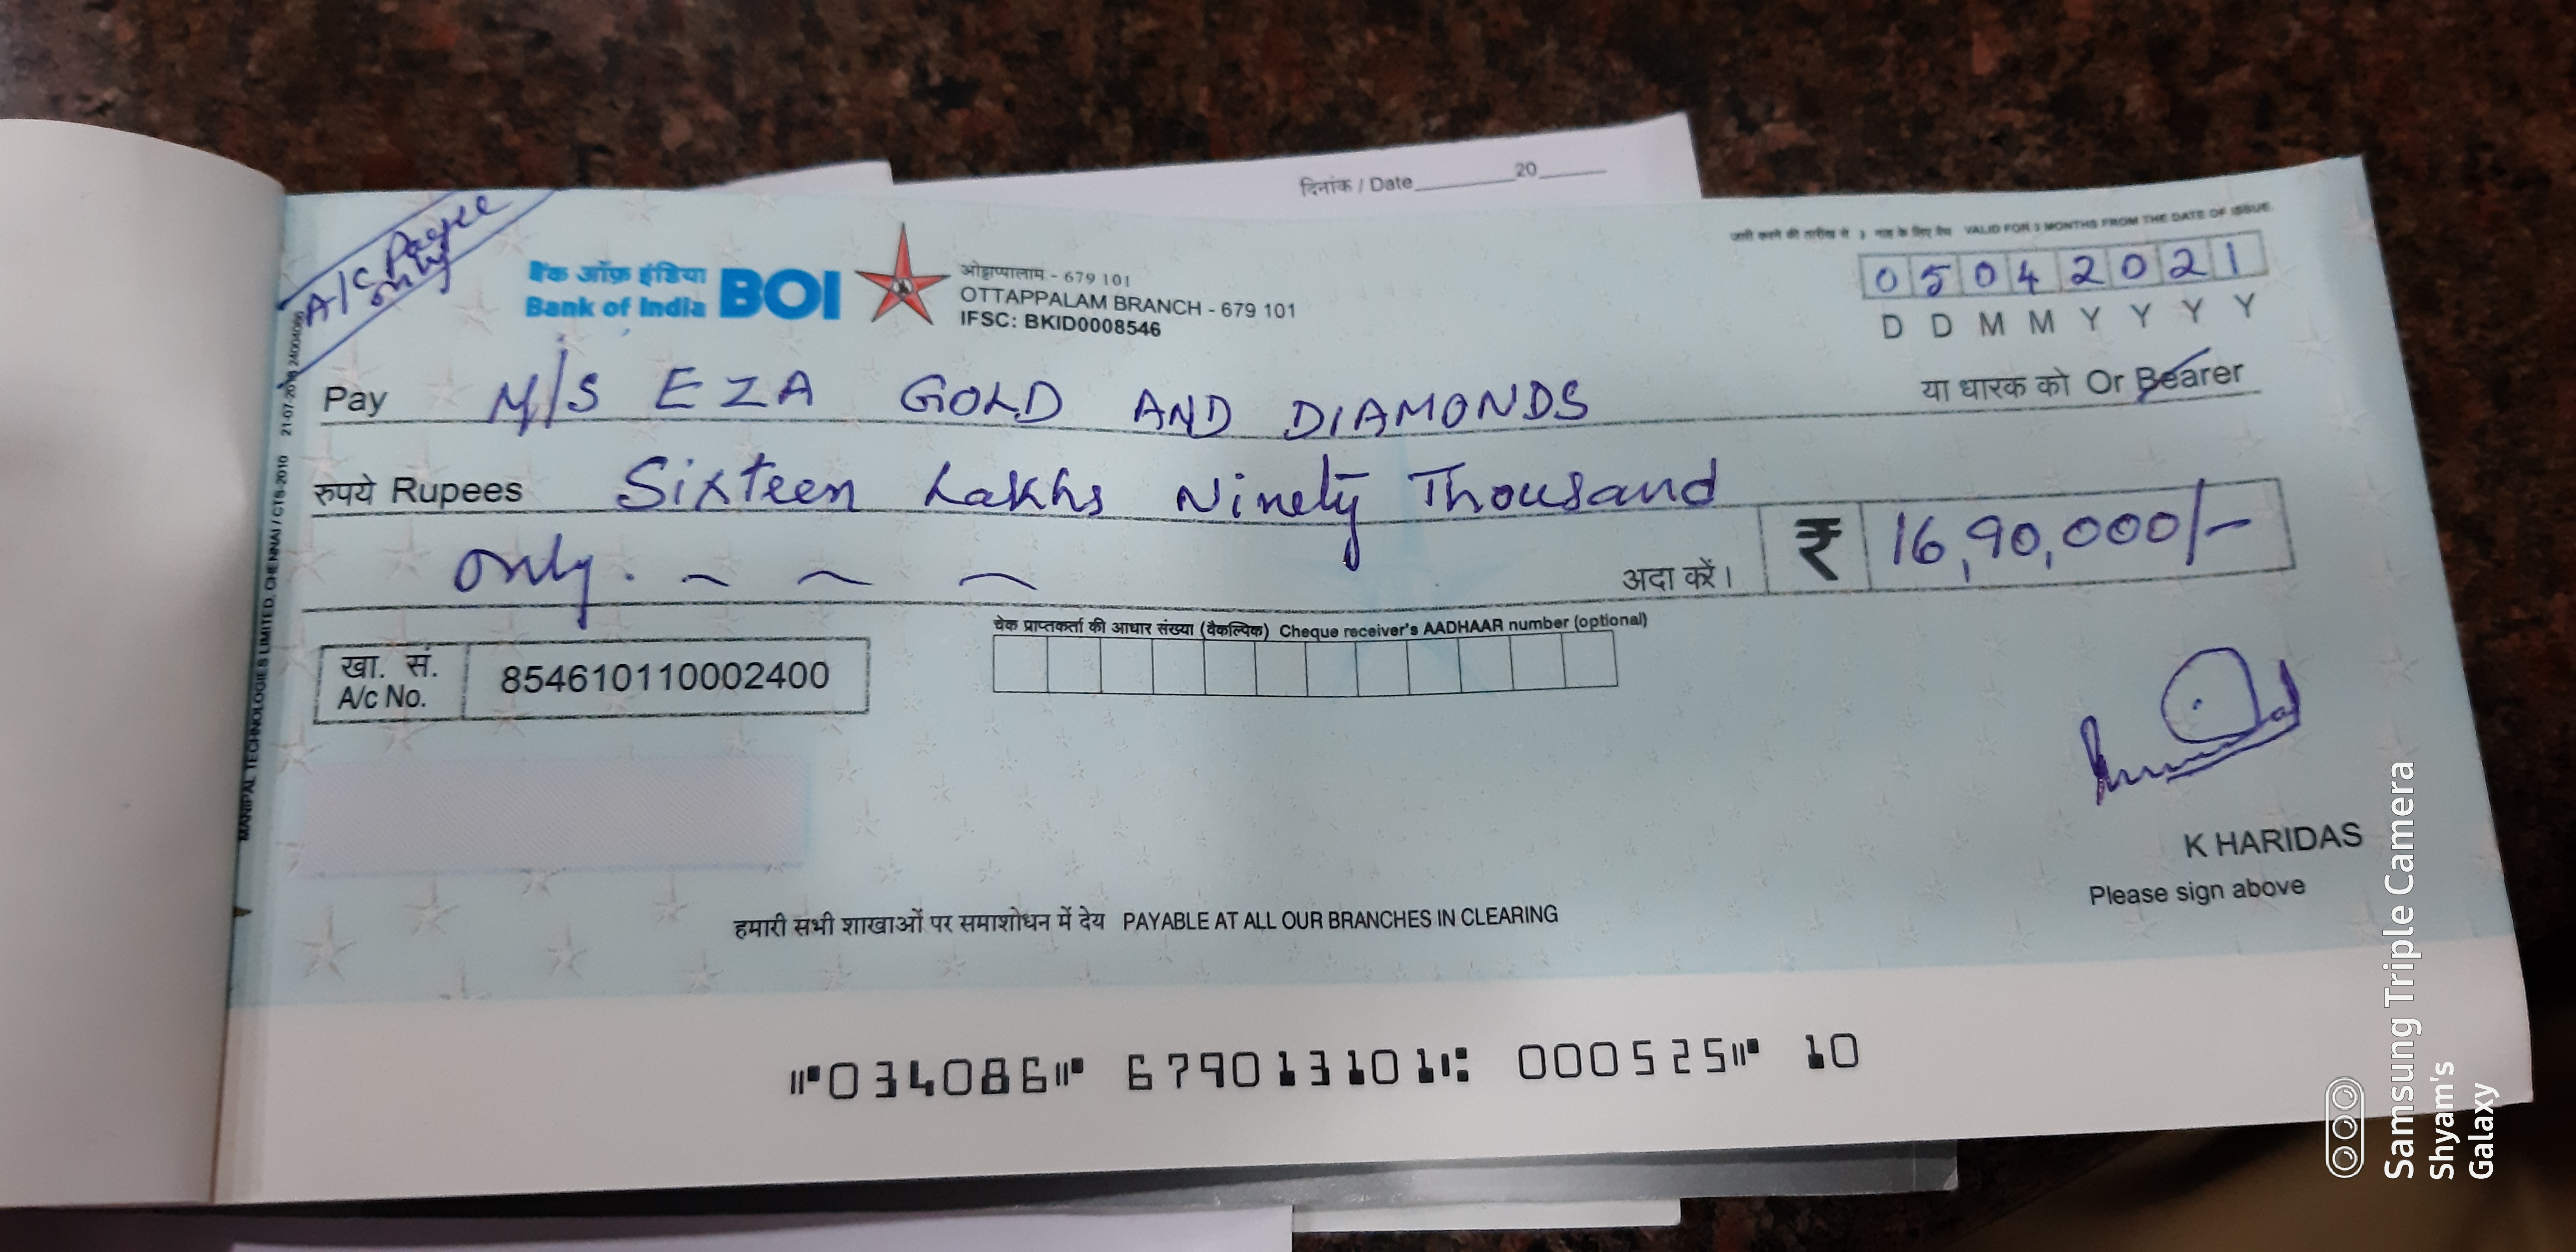 दिनांक / Date__________20______
A/C Payee
only
बैंक ऑफ़ इंडिया
Bank of India BOI
ओट्टाप्पालाम - 679 101
OTTAPPALAM BRANCH - 679 101
IFSC: BKID0008546
जारी करने की तारीख से 3 माह के लिए वैध VALID FOR 3 MONTHS FROM THE DATE OF ISSUE
0 5 0 4 2 0 2 1
D D M M Y Y Y Y
Pay M/S EZA GOLD AND DIAMONDS या धारक को Or Bearer
रुपये Rupees Sixteen Lakhs Ninety Thousand
only. अदा करें। ₹ 16,90,000/-
चेक प्राप्तकर्ता की आधार संख्या (वैकल्पिक) Cheque receiver's AADHAAR number (optional)
खा. सं.
A/c No. 854610110002400
K HARIDAS
Please sign above
हमारी सभी शाखाओं पर समाशोधन में देय PAYABLE AT ALL OUR BRANCHES IN CLEARING
⑈034086⑈ 679013101⑆ 000525⑈ 10
MANIPAL TECHNOLOGIES LIMITED, CHENNAI / CTS-2010
Samsung Triple Camera
Shyam's
Galaxy